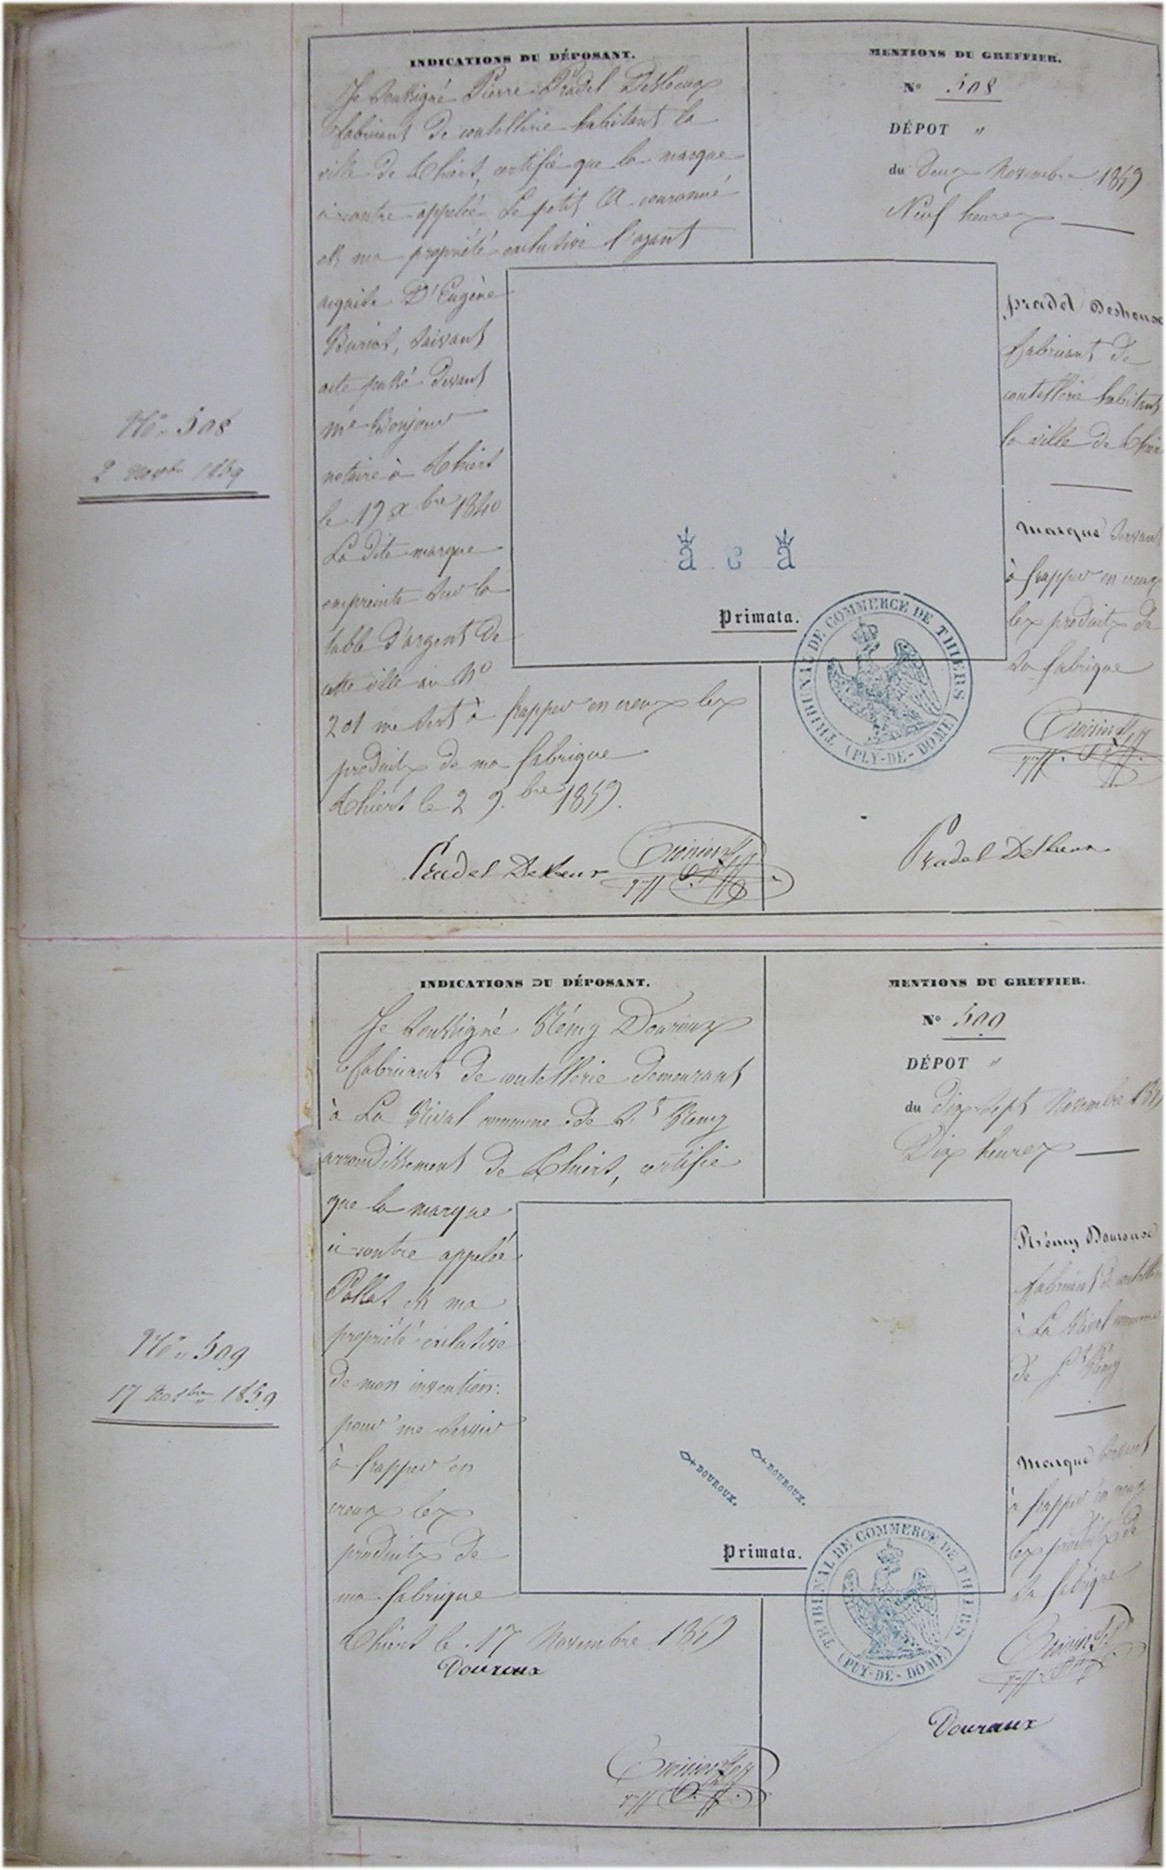 No. 508
2 Novbre 1859
INDICATIONS DU DÉPOSANT.
Je soussigné Pierre Pradel Desheux
fabricant de coutellerie habitant la
ville de Thiers, certifie que la marque
ci-contre appelée Le petit a couronné
est ma propriété exclusive l'ayant
acquise d'Eugène
suivant
acte passé devant
Me Bonjour
notaire à Thiers
le 19 Xbre 1840
La dite marque
empreinte sur la
table d'argent de
cette ville au No
201 me sert à frapper en creux les
produits de ma fabrique
Thiers le 2 9.bre 1859.
Pradel Desheux
MENTIONS DU GREFFIER.
No 508
DÉPOT "
du Deux Novembre 1859
Neuf heures
Pradel Desheux
fabricant de
coutellerie habitant
la ville de
Marque servant
à frapper en creux
les produits de
sa fabrique
a c a
Primata.
TRIBUNAL DE COMMERCE DE THIERS
(PUY-DE-DOME)
Pradel Desheux
No. 509
17 Novbre 1859
INDICATIONS DU DÉPOSANT.
Je soussigné Rémy Douroux
fabricant de coutellerie demeurant
à La commune de St Rémy
arrondissement de Thiers, certifie
que la marque
ci-contre appelée
est ma
propriété exclusive
de mon invention
pour me servir
à frapper en
creux les
produits de
ma fabrique
Thiers le 17 Novembre 1859
Douroux
MENTIONS DU GREFFIER.
No 509
DÉPOT "
du Dix Sept Novembre
Dix heures
Rémy Douroux
fabricant de
à La
de St Rémy
Marque servant
à frapper en creux
les produits de
sa fabrique
DOUROUX. DOUROUX.
Primata.
TRIBUNAL DE COMMERCE DE THIERS
(PUY-DE-DOME)
Douroux